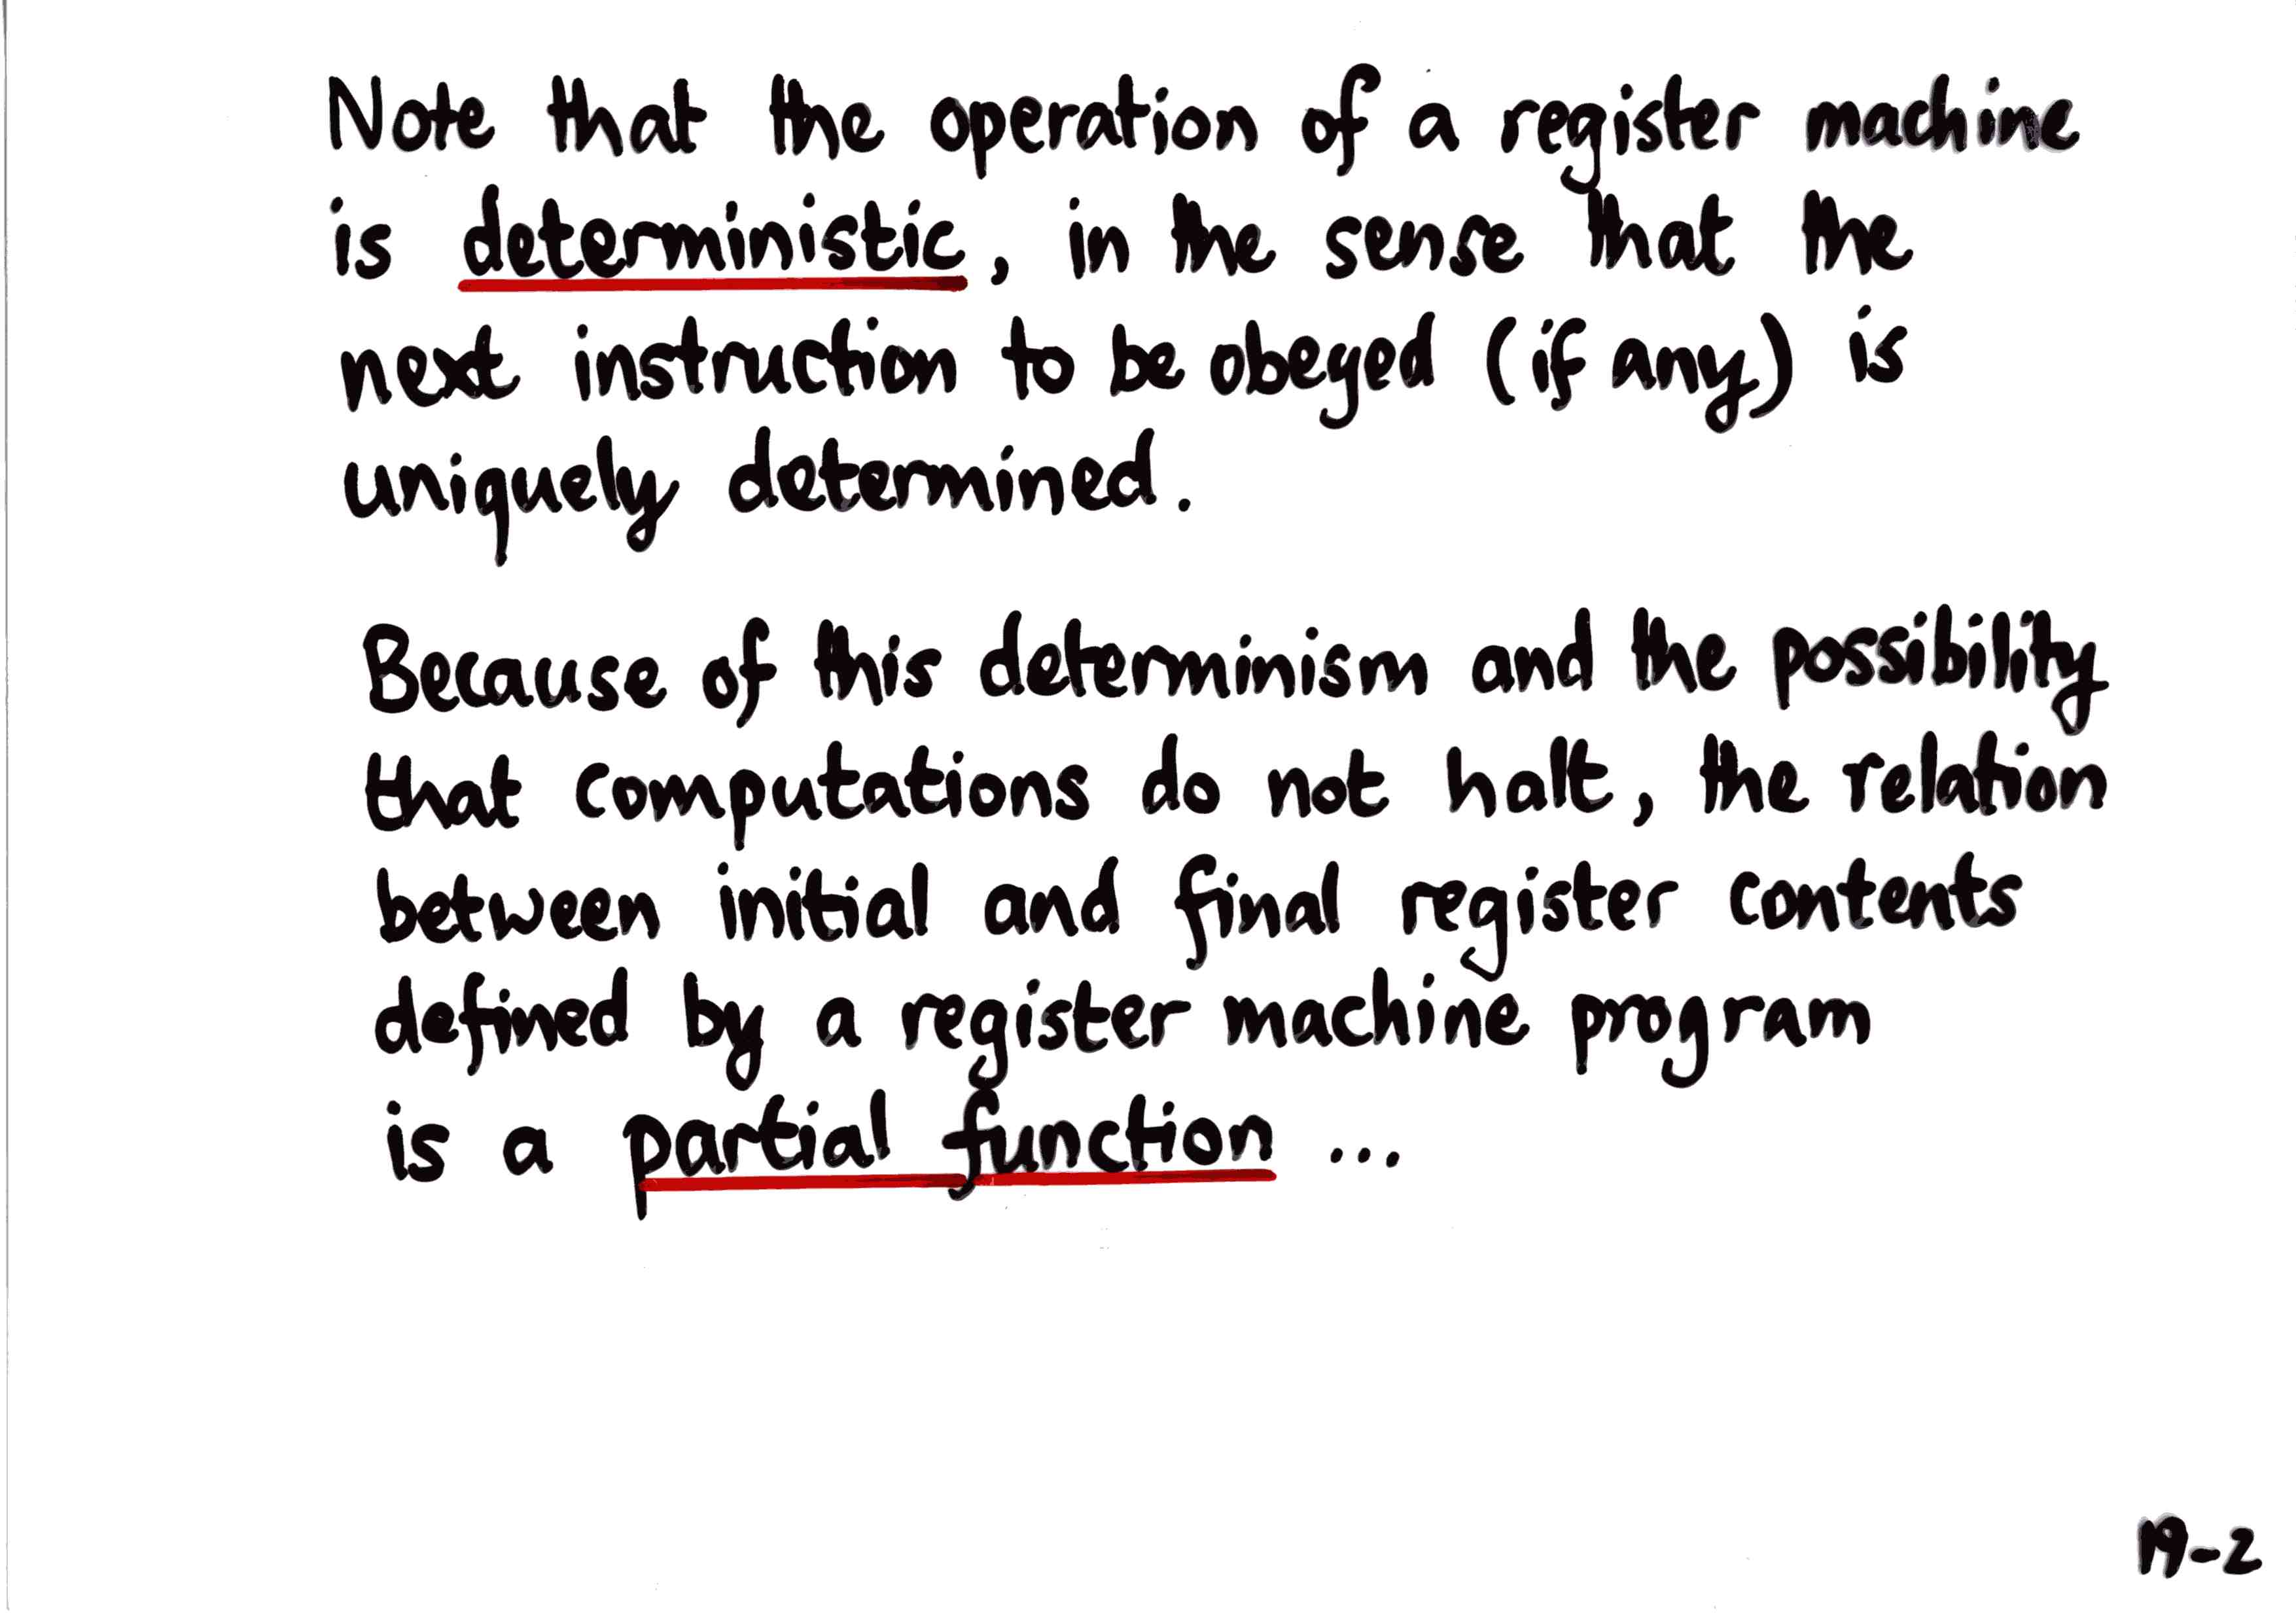 Note that the operation of a register machine
is deterministic, in the sense that the
next instruction to be obeyed (if any) is
uniquely determined.
Because of this determinism and the possibility
that computations do not halt, the relation
between initial and final register contents
defined by a register machine program
is a partial function ...
19-2